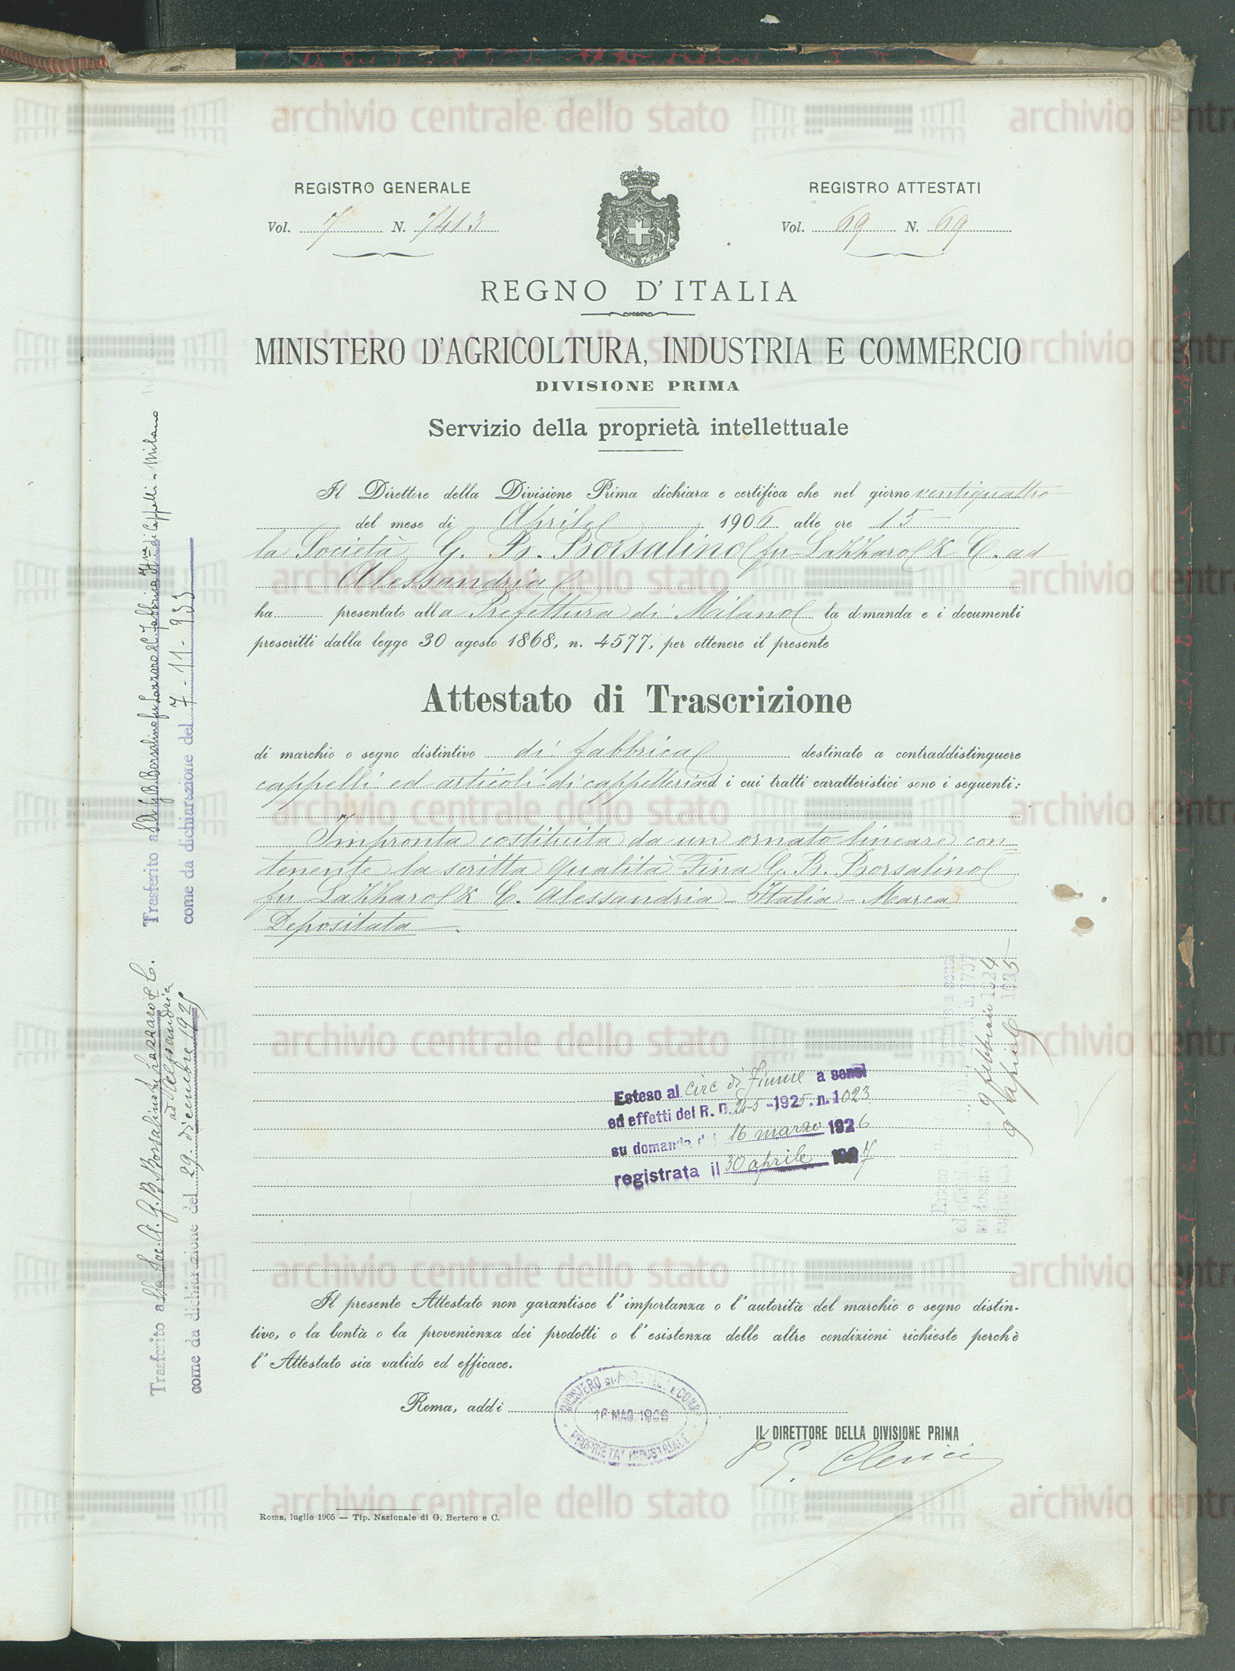 archivio centrale dello stato
REGISTRO GENERALE
Vol. 7 N. 7413
REGISTRO ATTESTATI
Vol. 69 N. 69
REGNO D'ITALIA
MINISTERO D'AGRICOLTURA, INDUSTRIA E COMMERCIO
DIVISIONE PRIMA
Servizio della proprietà intellettuale
Il Direttore della Divisione Prima dichiara e certifica che nel giorno ventiquattro
del mese di Aprile 1906 alle ore 15
la Società G. B. Borsalino fu Lazzaro & C. ad
Alessandria
ha presentato alla Prefettura di Milano la dmanda e i documenti
prescritti dalla legge 30 agosto 1868, n. 4577, per ottenere il presente
Attestato di Trascrizione
di marchio o segno distintivo di fabbrica destinato a contraddistinguere
cappelli ed articoli di cappelleria ed i cui tratti caratteristici sono i seguenti:
Impronta costituita da un ornato lineare con=
tenente la scritta Qualità Fina G. B. Borsalino
fu Lazzaro & C. Alessandria - Italia - Marca
Depositata.
Esteso al circ di Fiume a sensi
ed effetti del R. D. -1925. n. 1023
su domanda del 16 marzo 1926
registrata il 30 aprile
9 febbraio 1924
9 aprile 1935
Il presente Attestato non garantisce l'importanza o l'autorità del marchio o segno distin-
tivo, o la bontà o la provenienza dei prodotti o l'esistenza delle altre condizioni richieste perchè
l'Attestato sia valido ed efficace.
Roma, addì
16 MAG 1906
PROPRIETA' INDUSTRIALE
IL DIRETTORE DELLA DIVISIONE PRIMA
G. Clerici
Roma, luglio 1905 — Tip. Nazionale di G. Bertero e C.
Trasferito alla Soc. A. G. B. Borsalino fu Lazzaro & C.
ad Alessandria
come da dichiarazione del 29 dicembre 1925
Trasferito a S.A. G. B. Borsalino fu Lazzaro & C. Fabbrica di Cappelli - Milano
come da dichiarazione del 7-11-933